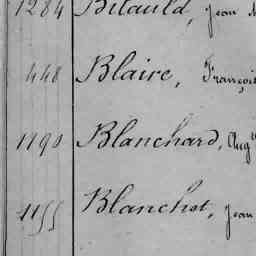 1284 Bitauld, Jean
448 Blaire, François
1190 Blanchard, Aug
1155 Blanchet, Jean